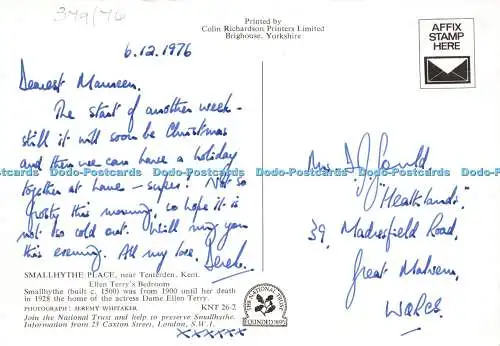 379/76
Printed by
Colin Richardson Printers Limited
Brighouse, Yorkshire
AFFIX
STAMP
HERE
6.12.1976
Dearest Maureen.
The start of another week -
still it will soon be Christmas
and then we can have a holiday
together at home - super! Not so
frosty this morning, so hope it is
not too cold out. Will ring you
this evening. All my love. Derek.
xxxxxx
Mrs D.J. Gould
"Heathlands".
39, Madresfield Road,
Great Malvern,
WORCS.
SMALLHYTHE PLACE, near Tenterden, Kent.
Ellen Terry's Bedroom
Smallhythe (built c. 1500) was from 1900 until her death
in 1928 the home of the actress Dame Ellen Terry.
PHOTOGRAPH : JEREMY WHITAKER
KNT 26-2
Join the National Trust and help to preserve Smallhythe.
Information from 23 Caxton Street, London, S.W.1.
THE NATIONAL TRUST
FOUNDED 1895
Dodo-Postcards Dodo-Postcards Dodo-Postcards Dodo-Postcards Dodo-Postcards Dodo-Postcards